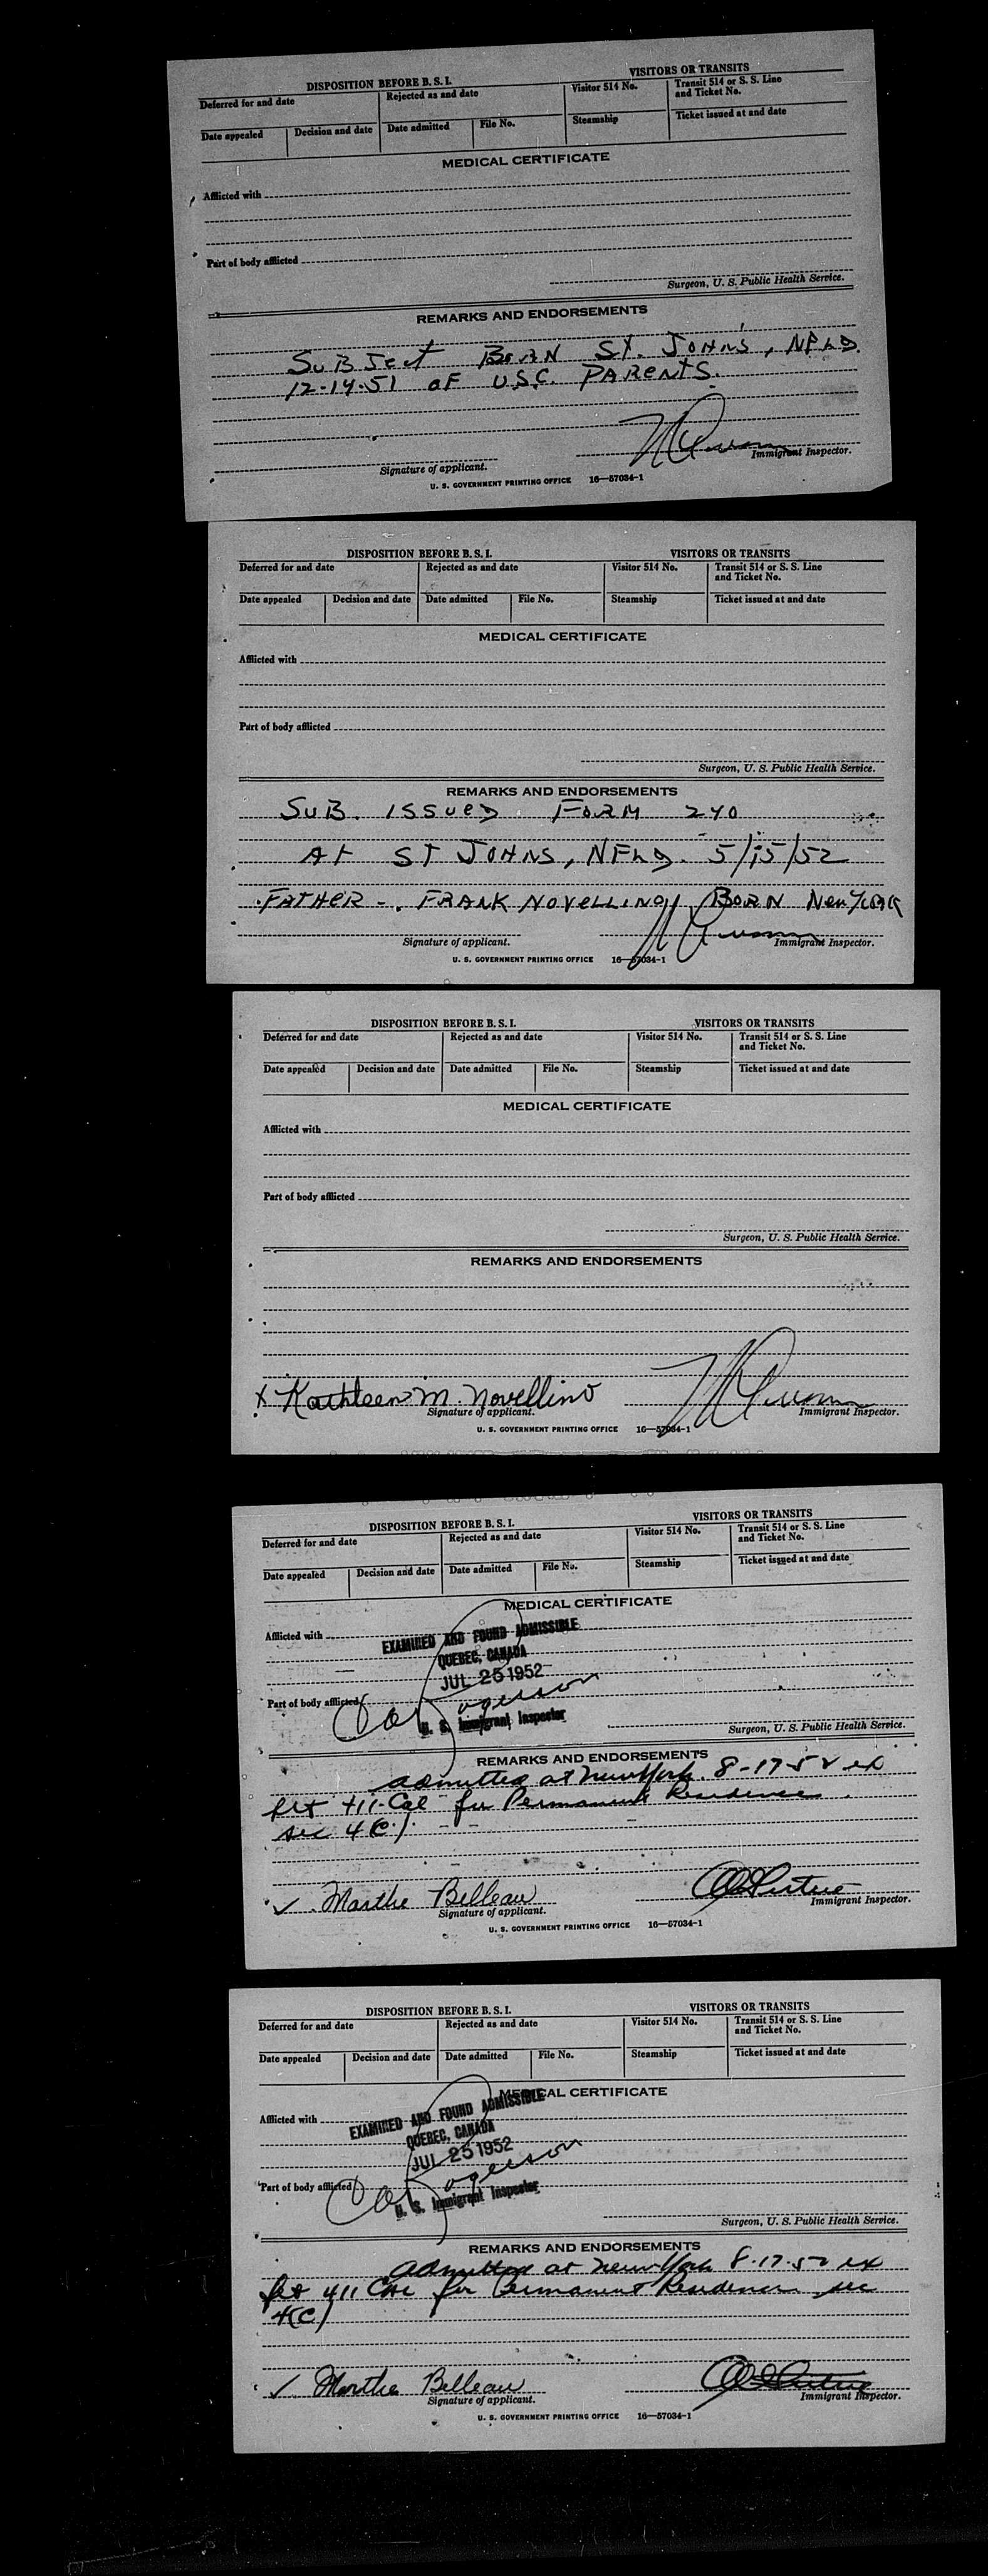 DISPOSITION BEFORE B. S. I.
VISITORS OR TRANSITS
Deferred for and date
Rejected as and date
Visitor 514 No.
Transit 514 or S. S. Line
and Ticket No.
Date appealed
Decision and date
Date admitted
File No.
Steamship
Ticket issued at and date
MEDICAL CERTIFICATE
Afflicted with
Part of body afflicted
Surgeon, U. S. Public Health Service.
REMARKS AND ENDORSEMENTS
SUBJECT BORN ST. JOHN'S, NFLD.
12-14-51 OF U.S.C. PARENTS.
Signature of applicant.
Immigrant Inspector.
U. S. GOVERNMENT PRINTING OFFICE 16—57034-1
DISPOSITION BEFORE B. S. I.
VISITORS OR TRANSITS
Deferred for and date
Rejected as and date
Visitor 514 No.
Transit 514 or S. S. Line
and Ticket No.
Date appealed
Decision and date
Date admitted
File No.
Steamship
Ticket issued at and date
MEDICAL CERTIFICATE
Afflicted with
Part of body afflicted
Surgeon, U. S. Public Health Service.
REMARKS AND ENDORSEMENTS
SUB. ISSUED FORM 240
AT ST JOHNS, NFLD. 5/15/52
FATHER - FRANK NOVELLINO, BORN New YORK
Signature of applicant.
Immigrant Inspector.
U. S. GOVERNMENT PRINTING OFFICE 16—57034-1
DISPOSITION BEFORE B. S. I.
VISITORS OR TRANSITS
Deferred for and date
Rejected as and date
Visitor 514 No.
Transit 514 or S. S. Line
and Ticket No.
Date appealed
Decision and date
Date admitted
File No.
Steamship
Ticket issued at and date
MEDICAL CERTIFICATE
Afflicted with
Part of body afflicted
Surgeon, U. S. Public Health Service.
REMARKS AND ENDORSEMENTS
x Kathleen M. Novellino
Signature of applicant.
Immigrant Inspector.
U. S. GOVERNMENT PRINTING OFFICE 16—57034-1
DISPOSITION BEFORE B. S. I.
VISITORS OR TRANSITS
Deferred for and date
Rejected as and date
Visitor 514 No.
Transit 514 or S. S. Line
and Ticket No.
Date appealed
Decision and date
Date admitted
File No.
Steamship
Ticket issued at and date
MEDICAL CERTIFICATE
Afflicted with
EXAMINED AND FOUND ADMISSIBLE
QUEBEC, CANADA
JUL 25 1952
Part of body afflicted
U. S. Immigrant Inspector
Surgeon, U. S. Public Health Service.
REMARKS AND ENDORSEMENTS
admitted at New York 8-17-52 ex
flt 411-Cal for Permanent Residence
sec 4(c).
✓ Marthe Belleau
Signature of applicant.
Immigrant Inspector.
U. S. GOVERNMENT PRINTING OFFICE 16—57034-1
DISPOSITION BEFORE B. S. I.
VISITORS OR TRANSITS
Deferred for and date
Rejected as and date
Visitor 514 No.
Transit 514 or S. S. Line
and Ticket No.
Date appealed
Decision and date
Date admitted
File No.
Steamship
Ticket issued at and date
MEDICAL CERTIFICATE
Afflicted with
EXAMINED AND FOUND ADMISSIBLE
QUEBEC, CANADA
JUL 25 1952
Part of body afflicted
U. S. Immigrant Inspector
Surgeon, U. S. Public Health Service.
REMARKS AND ENDORSEMENTS
admitted at New York 8-17-52 ex
flt 411 Cal for Permanent Residence sec
4(c)
✓ Marthe Belleau
Signature of applicant.
Immigrant Inspector.
U. S. GOVERNMENT PRINTING OFFICE 16—57034-1